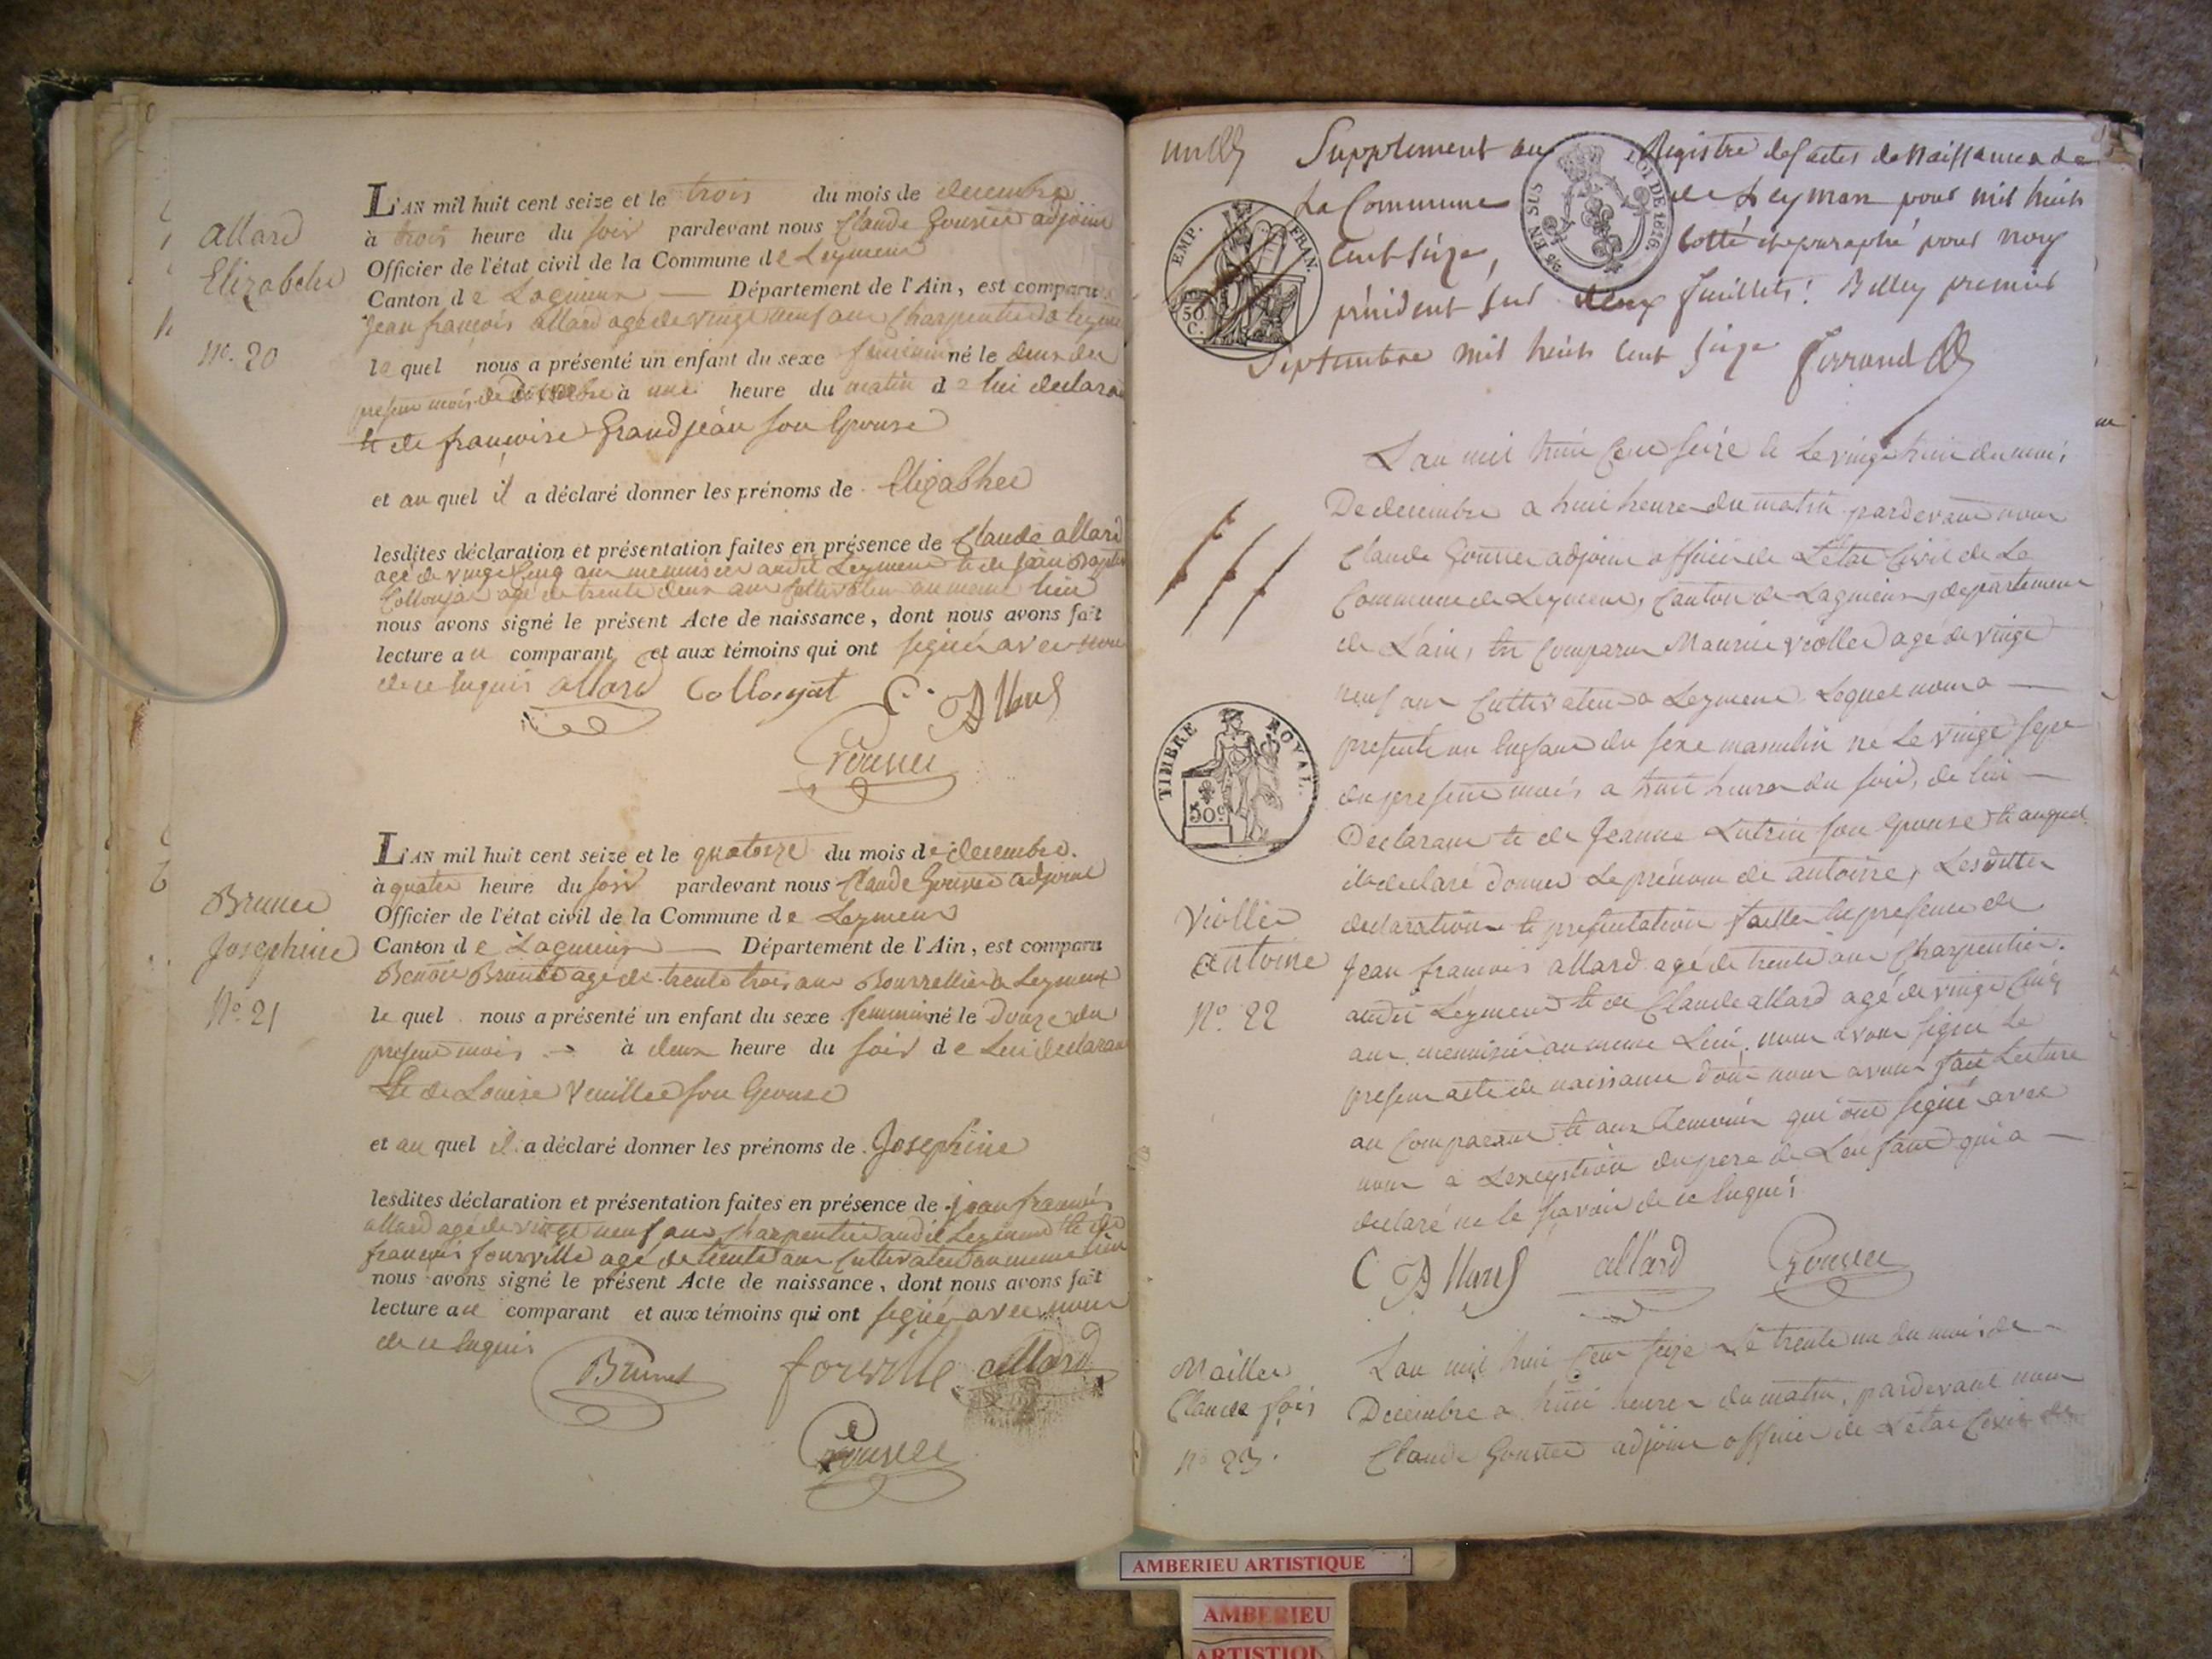 allard
Elizabeth
N°. 20
L'AN mil huit cent seize et le trois du mois de decembre
à trois heure du soir pardevant nous Claude Gouner adjoint
Officier de l'état civil de la Commune de Leymen
Canton de Lagnieux Département de l'Ain, est comparu
jean françois allard agé de vingt neuf ans Charpentier a
le quel nous a présenté un enfant du sexe feminin né le deux du
present mois de decembre à une heure du matin de lui declarant
et de françoise Grandjean son Epouse
et au quel il a déclaré donner les prénoms de Elizabhet
lesdites déclaration et présentation faites en présence de Claude allard
agé de vingt Cinq ans menuisier audit Leyment et de jean Baptiste
Collonjat agé de trente deux ans Cultivateur au meme lieu
nous avons signé le présent Acte de naissance, dont nous avons fait
lecture au comparant et aux témoins qui ont signé avec nous
de ce Enquis allard Collonjat C. Allard
Gouner
Brunet
Josephine
N°. 21
L'AN mil huit cent seize et le quatorze du mois de decembre.
à quatre heure du soir pardevant nous Claude Gouner adjoint
Officier de l'état civil de la Commune de Leyment
Canton de Lagnieux Département de l'Ain, est comparu
Benoit Brunet agé de trente trois ans Bourrellier a Leyment
le quel nous a présenté un enfant du sexe feminin né le douze du
present mois à deux heure du soir de Lui declarant
Et de Louise Veuillet son Epouse
et au quel il a déclaré donner les prénoms de Josephine
lesdites déclaration et présentation faites en présence de jean francois
allard agé de vingt neuf ans Charpentier audit Leyment et de
francois fourville agé de trente ans Cultivateur au meme lieu
nous avons signé le présent Acte de naissance, dont nous avons fait
lecture au comparant et aux témoins qui ont signé avec nous
de ce Enquis
Brunet fourville allard
Gouner
Supplement au Registre des actes de Naissances de
La Commune de Leyman pour mil huit
cent seize, cotté et paraphé pour nous
président sur deux feuillets. Belley premier
Septembre mil huit cent seize ferrand
EMP. FRAN.
50 C.
LOI DE 1816.
EN SUS
TIMBRE ROYAL.
50 c
L'an mil huit Cent seize et Le vingt huit du mois
De decembre a huit heures du matin pardevant nous
Claude Gouner adjoint officier de L'etat Civil de La
Commune de Leyment, Canton de Lagnieux, departement
de L'ain, est Comparu Maurice Viollet agé de vingt
neuf ans Cultivateur a Leyment Lequel nous a
presenté un Enfant du sexe masculin né Le vingt sept
du present mois a huit heures du soir, de lui
Declarant et de Jeanne Lutrin son Epouse et auquel
il a declaré donner Le prénom de antoine, Lesdittes
declaration et presentation faittes En presence de
Jean francois allard agé de trente ans Charpentier
audit Leyment et de Claude allard agé de vingt Cinq
ans menuisier au meme Lieu, nous avons signé Le
present acte de naissance dont nous avons fait Lecture
au Comparant et aux Temoins qui ont signé avec
nous a L'exception du pere de L'enfant qui a
declaré ne le savoir de ce Enquis
Viollet
antoine
N°. 22
C Allard allard Gouner
Claude
N° 23.
L'an mil huit Cent seize Le trente un du mois de
Decembre a huit heures du matin, pardevant nous
Claude Gouner adjoint officier de L'état Civil de
AMBERIEU ARTISTIQUE
AMBERIEU
ARTISTIQU